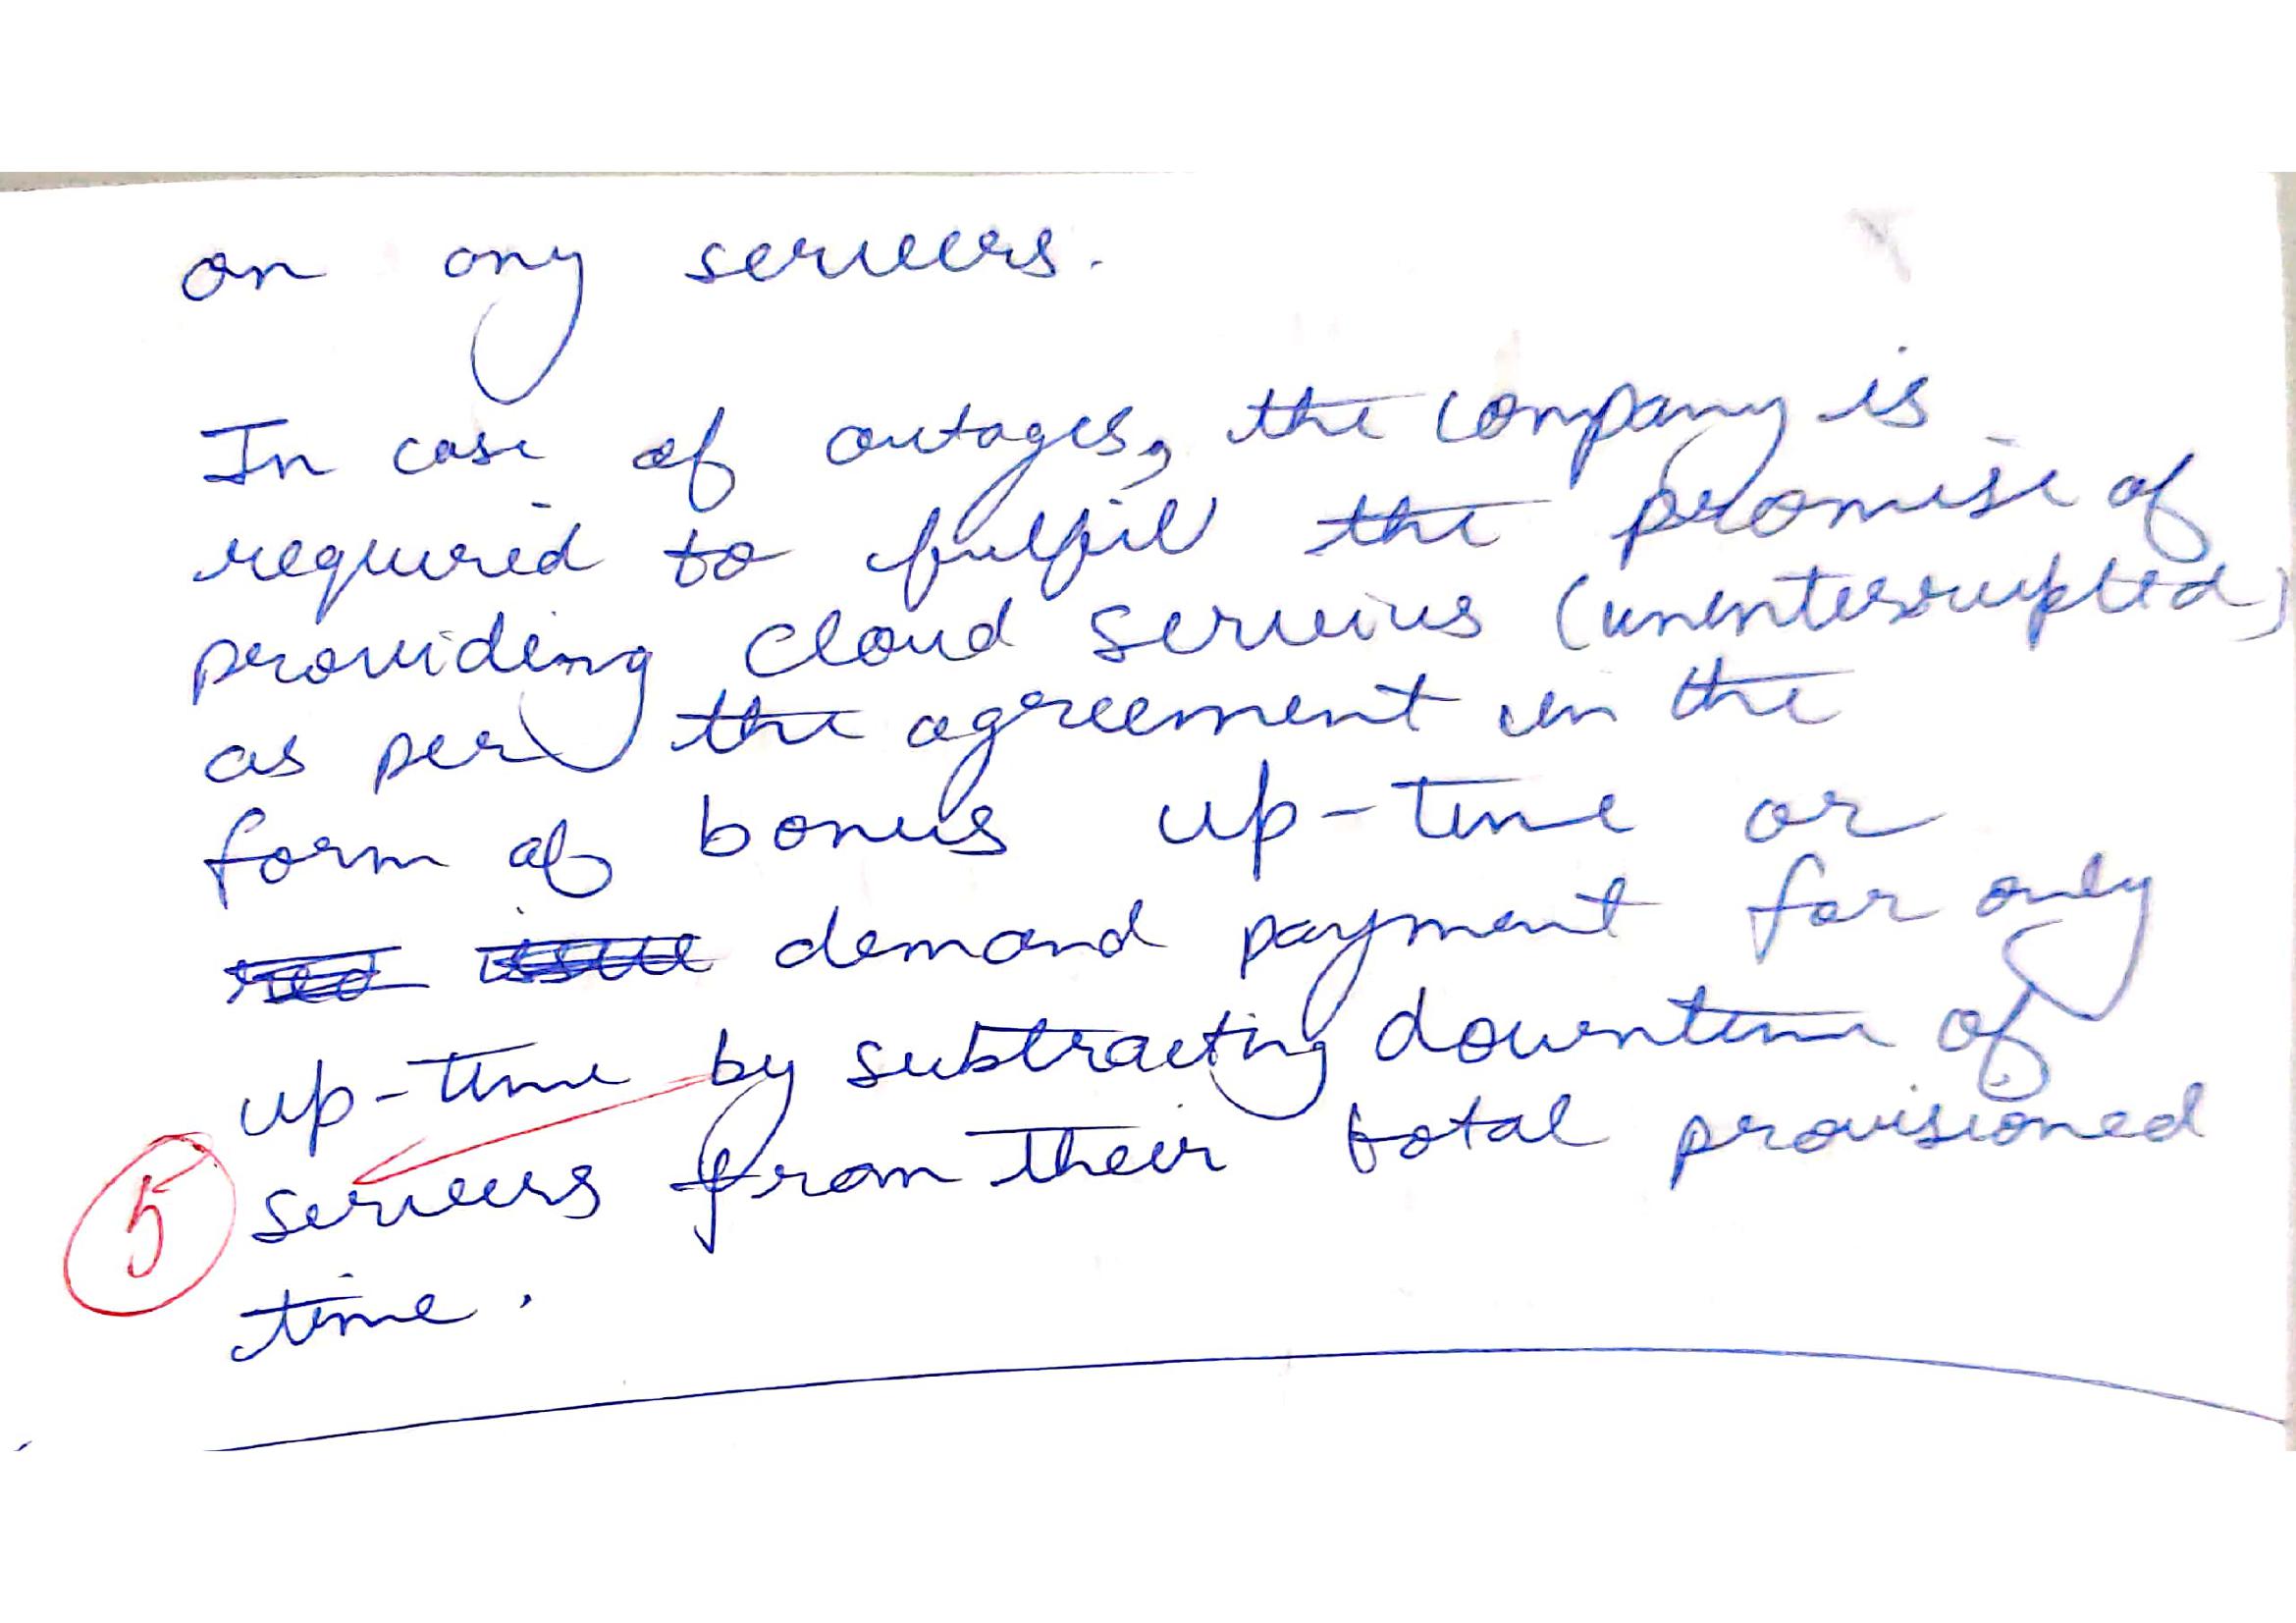 on any servers.
In case of outages, the company is
required to fulfil the promise of
providing cloud services (uninterrupted)
as per the agreement in the
form of bonus up-time or
demand payment for only
up-time by subtracting downtime of
servers from their total provisioned
5
time.